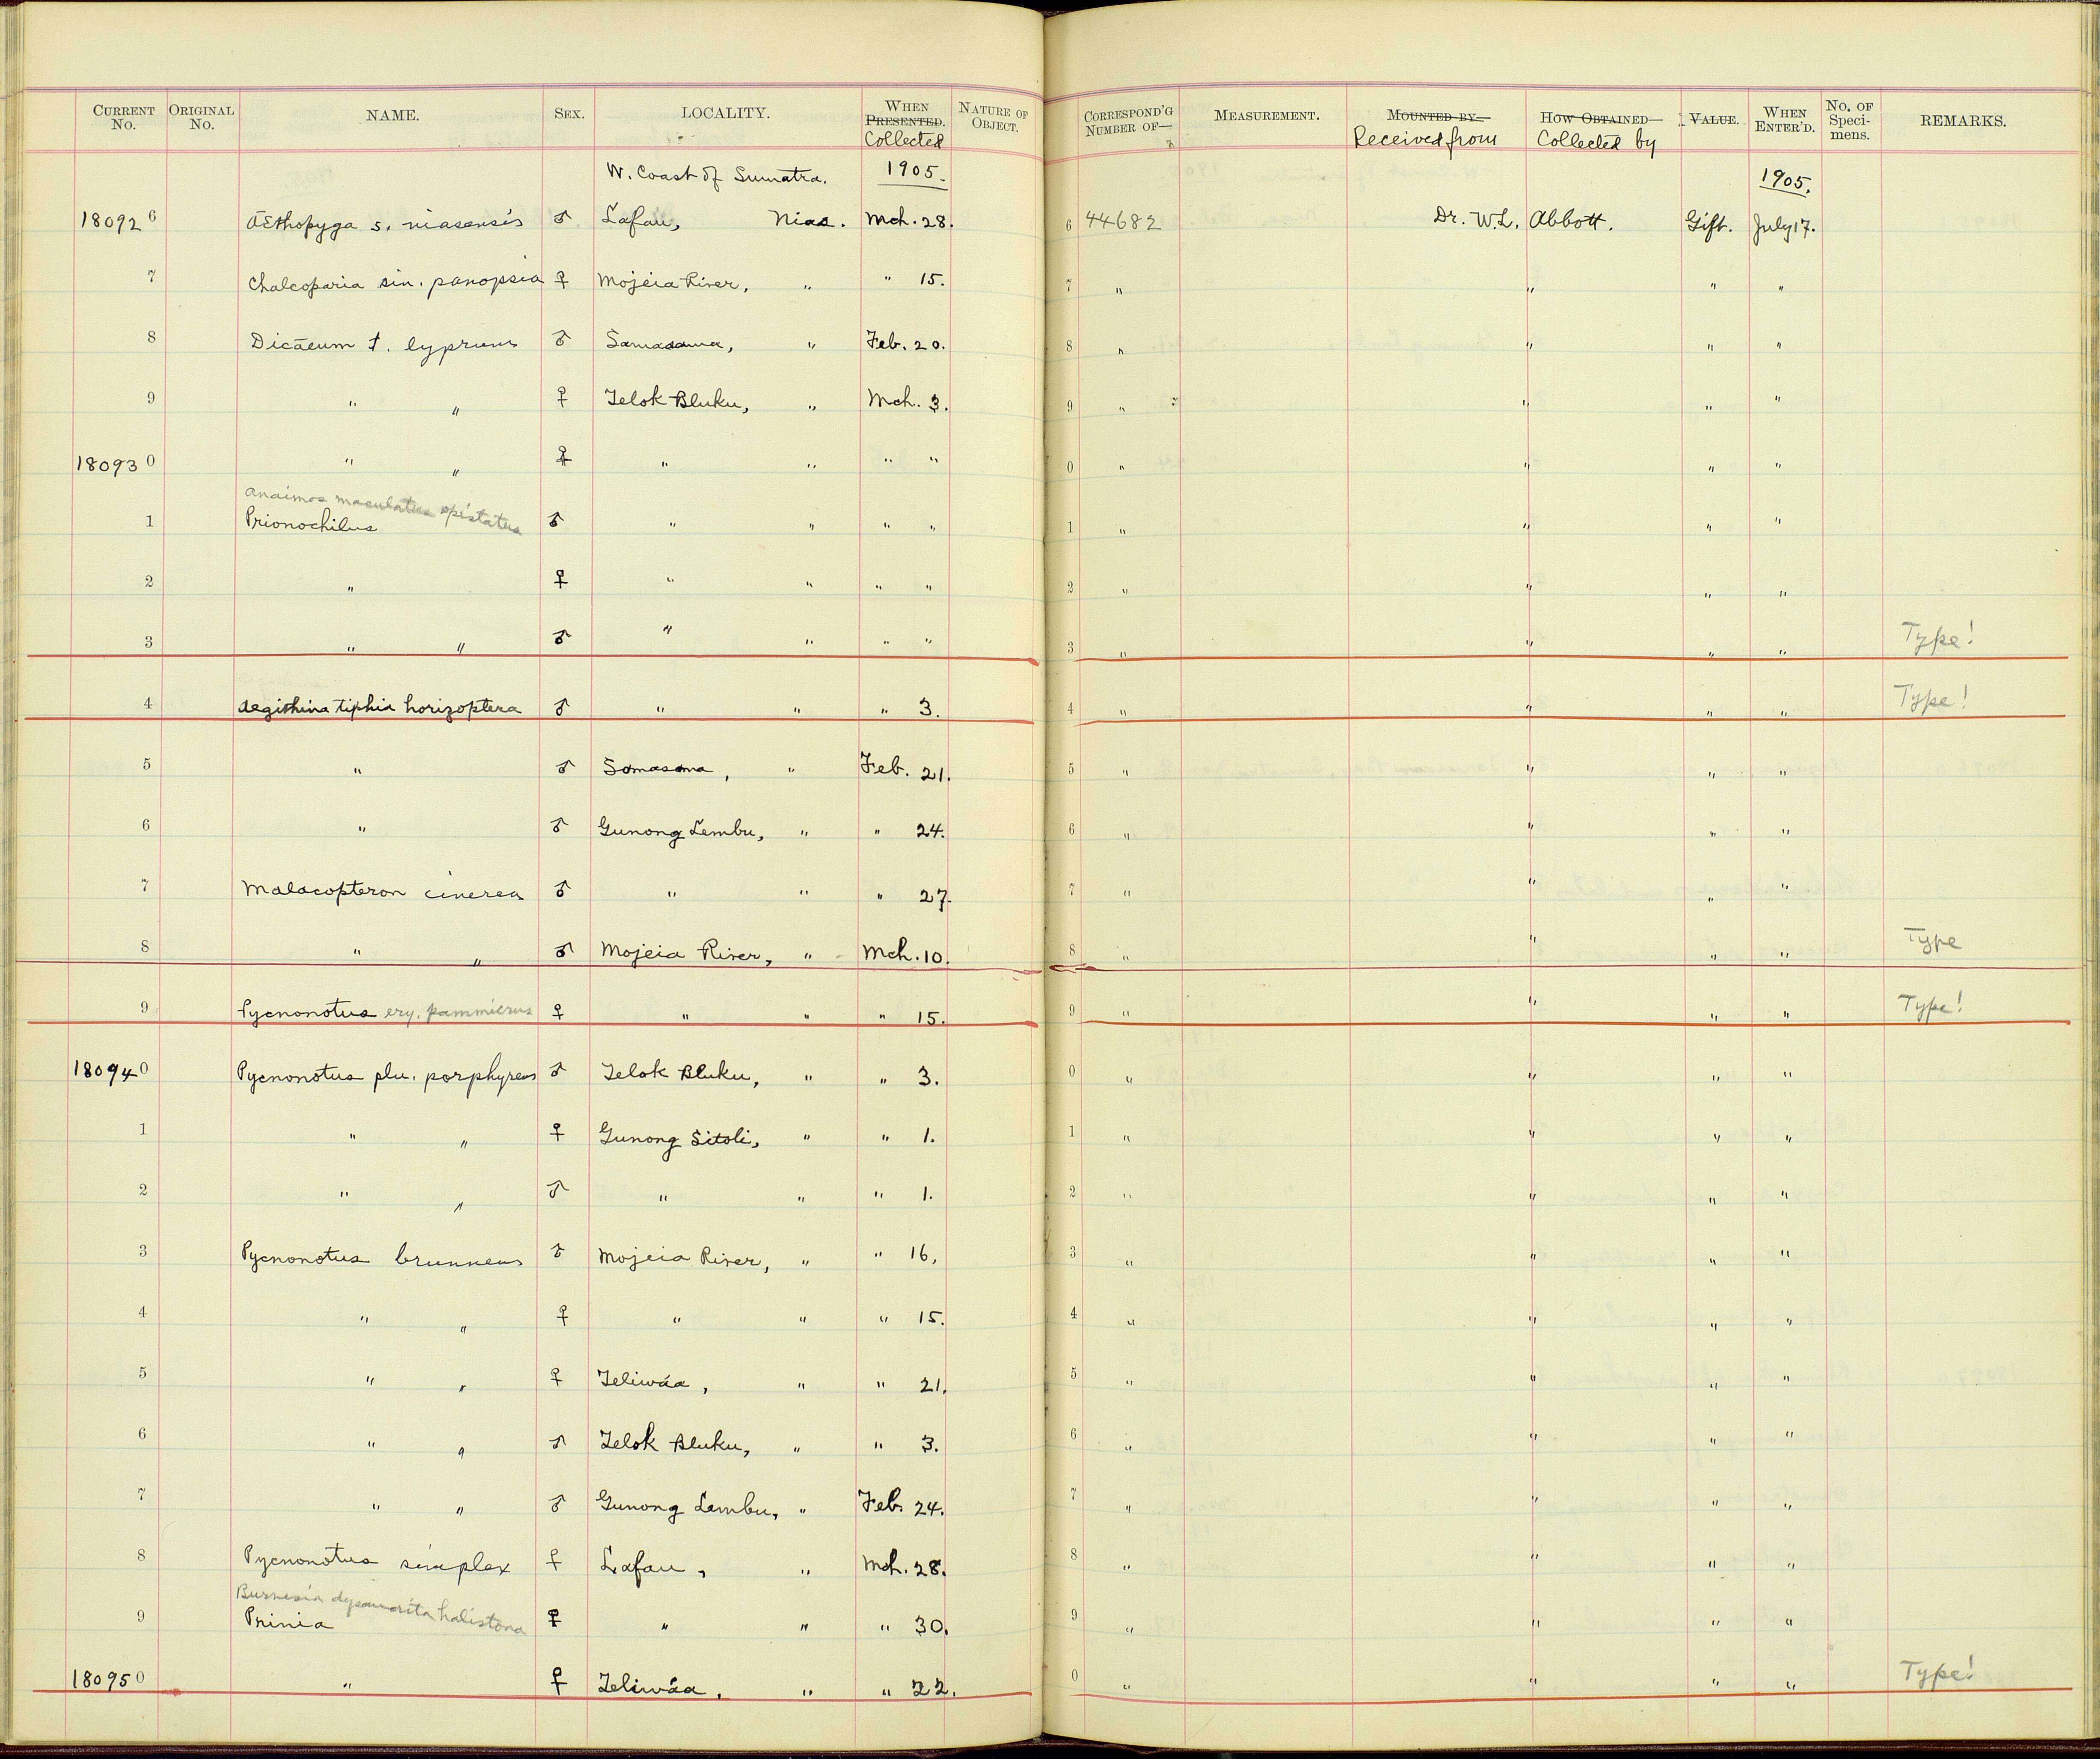 CURRENT No. ORIGINAL No. NAME. SEX. LOCALITY. WHEN PRESENTED. Collected NATURE OF OBJECT. CORRESPOND'G NUMBER OF— MEASUREMENT. MOUNTED BY— Received from HOW OBTAINED— Collected by VALUE. WHEN ENTER'D. No. OF Specimens. REMARKS.
W. Coast of Sumatra. 1905. 1905.
180926 Æthopyga s. niasensis ♂ Lafau, Nias. Mch. 28. 6 44682 Dr. W.L. Abbott. Gift. July 17.
7 Chalcoparia sin. panopsia ♀ Mojeia River, " " 15. 7 " " " "
8 Dicaeum t. lyprum ♂ Samasama, " Feb. 20. 8 " " " "
9 " " ♀ Telok Bluku, " Mch. 3. 9 " " " "
180930 " " ♀ " " " " 0 " " " "
Anaimos maculatus opistatus
1 Prionochilus ♂ " " " " 1 " " " "
2 " ♀ " " " " 2 " " " "
3 " " ♂ " " " " 3 " " " " Type!
4 Aegithina tiphia horizoptera ♂ " " " 3. 4 " " " " Type!
5 " ♂ Somasoma, " Feb. 21. 5 " " " "
6 " ♂ Gunong Lembu, " " 24. 6 " " " "
7 Malacopteron cinerea ♂ " " " 27. 7 " " " "
8 " " ♂ Mojeia River, " Mch. 10. 8 " " " " Type
9 Pycnonotus ery. pammicrus ♀ " " " 15. 9 " " " " Type!
180940 Pycnonotus plu. porphyreus ♂ Telok Bluku, " " 3. 0 " " " "
1 " " ♀ Gunong Sitoli, " " 1. 1 " " " "
2 " " ♂ " " " 1. 2 " " " "
3 Pycnonotus brunneus ♂ Mojeia River, " " 16, 3 " " " "
4 " " ♀ " " " 15. 4 " " " "
5 " " ♀ Teliwáa, " " 21. 5 " " " "
6 " " ♂ Telok Bluku, " " 3. 6 " " " "
7 " " ♂ Gunong Lembu, " Feb. 24. 7 " " " "
8 Pycnonotus simplex ♀ Lafau, " Mch. 28. 8 " " " "
Burnesia halistona
9 Prinia ♀ " " " 30. 9 " " " "
180950 " ♀ Teliwáa, " " 22. 0 " " " " Type!